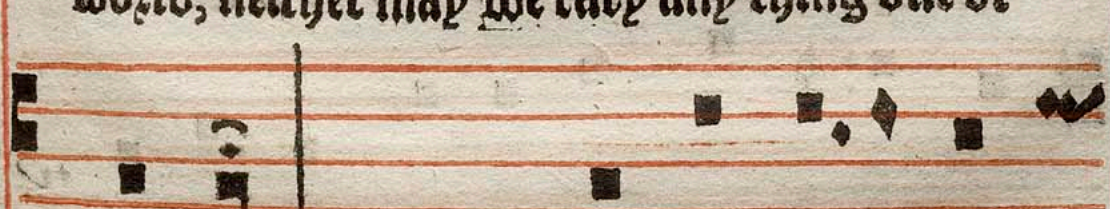 world, neither may we cary any thing out of